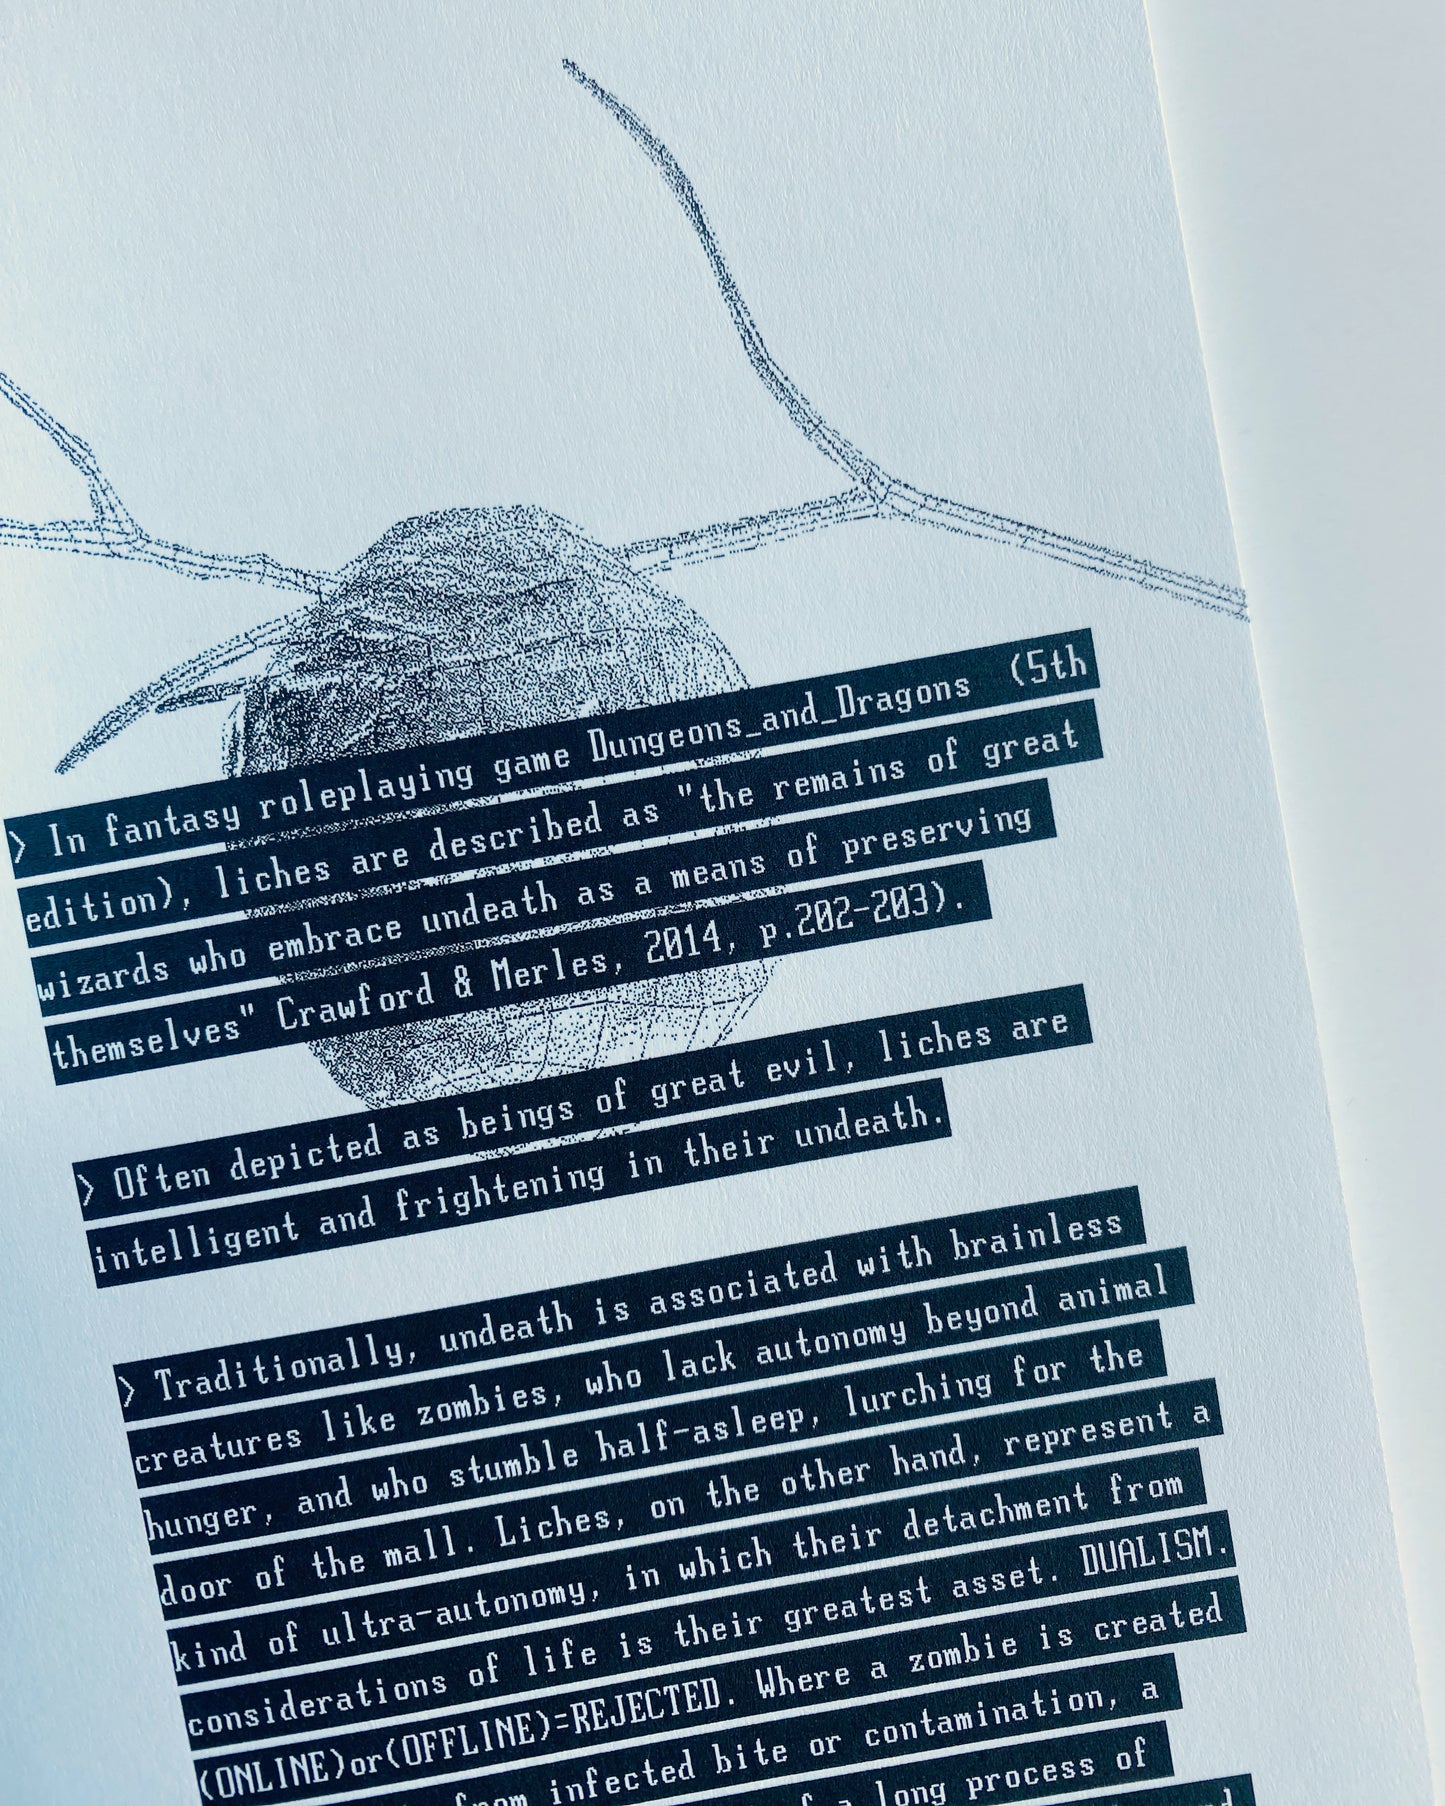 > In fantasy roleplaying game Dungeons_and_Dragons (5th
edition), liches are described as "the remains of great
wizards who embrace undeath as a means of preserving
themselves" Crawford & Merles, 2014, p.202-203).
> Often depicted as beings of great evil, liches are
intelligent and frightening in their undeath.
> Traditionally, undeath is associated with brainless
creatures like zombies, who lack autonomy beyond animal
hunger, and who stumble half-asleep, lurching for the
door of the mall. Liches, on the other hand, represent a
kind of ultra-autonomy, in which their detachment from
considerations of life is their greatest asset. DUALISM.
(ONLINE)or(OFFLINE)=REJECTED. Where a zombie is created
from infected bite or contamination, a
a long process of